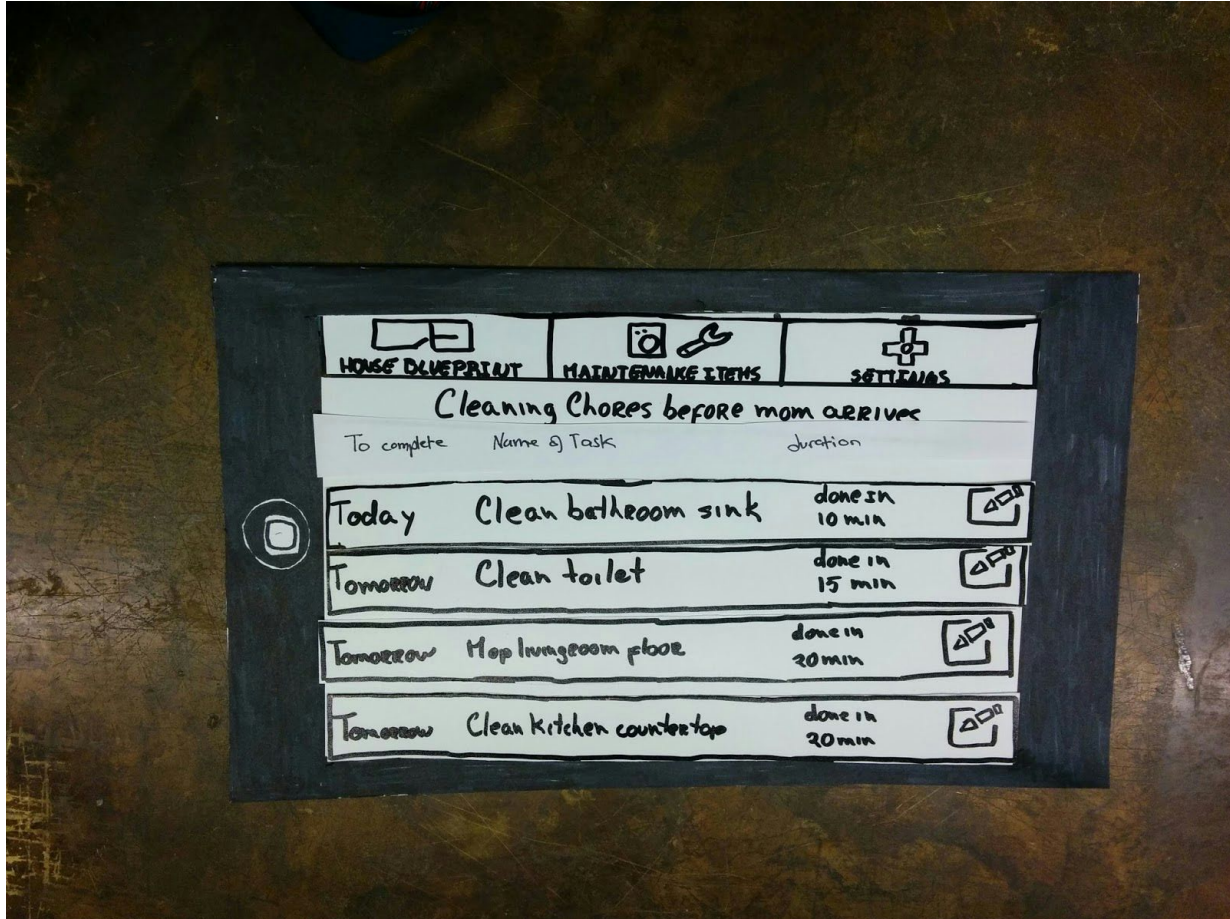 HOUSE BLUEPRINT
MAINTENANCE ITEMS
SETTINGS
Cleaning Chores before mom arrives
To complete Name of Task duration
Today Clean bathroom sink done in
10 min
Tomorrow Clean toilet done in
15 min
Tomorrow Mop livingroom floor done in
20 min
Tomorrow Clean kitchen countertop done in
20 min